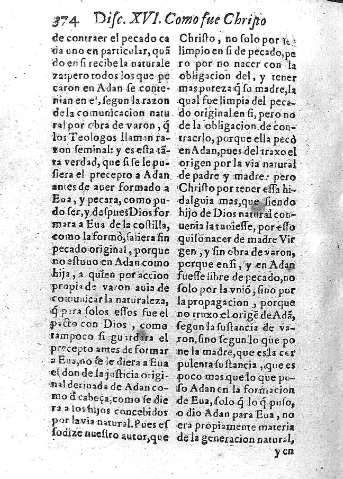 374 Disc. XVI. Como fue Christo
de contraer el pecado ca
da uno en particular, quã
do en si recibe la naturale
za: pero todos los que pe
caron en Adan se conte
nian en el, segun la razon
de la comunicacion natu
ral por obra de varon, q̃
los Teologos llaman ra
zon seminal: y es esta tã
ta verdad, que si se le pu
siera el precepto a Adan
antes de auer formado a
Eua, y pecara, como pu
do ser, y despues Dios for
mara a Eua de la costilla,
como la formò, saliera sin
pecado original, porque
no estuuo en Adan como
hija, a quien por accion
propia de varon auia de
comunicar la naturaleza,
q̃ para solos essos fue el
pacto con Dios, como
tampoco si guardara el
precepto antes de formar
a Eua, no se le diera a Eua
el don de la justicia origi
nal deriuada de Adan co
mo d̃ cabeça, como se die
ra a los hijos concebidos
por la via natural. Pues es
so dize nuestro autor, que
Christo, no solo por ser
limpio en si de pecado, pe
ro por no nacer con la
obligacion del, y tener
mas pureza q̃ su madre, la
qual fue limpia del peca
do original en si, pero no
de la obligacion de con-
traerlo, porque ella pecò
en Adan, pues del traxo el
origen por la via natural
de padre y madre: pero
Christo por tener essa hi-
dalguia mas, que siendo
hijo de Dios natural con-
uenia la tuuiesse, por esso
quiso nacer de madre Vir
gen, y sin obra de varon,
porque en si, y en Adan
fuesse libre de pecado, no
solo por la vniõ, sino por
la propagacion, porque
no truxo el origẽ de Adã,
segun la sustancia de va-
ron, sino segun lo que po
ne la madre, que es la cor
pulenta sustancia, que es
poco mas que lo que pu-
so Adan en la formacion
de Eua, solo q̃ lo q̃ puso,
o dio Adan para Eua, no
era propiamente materia
de la generacion natural,
y en